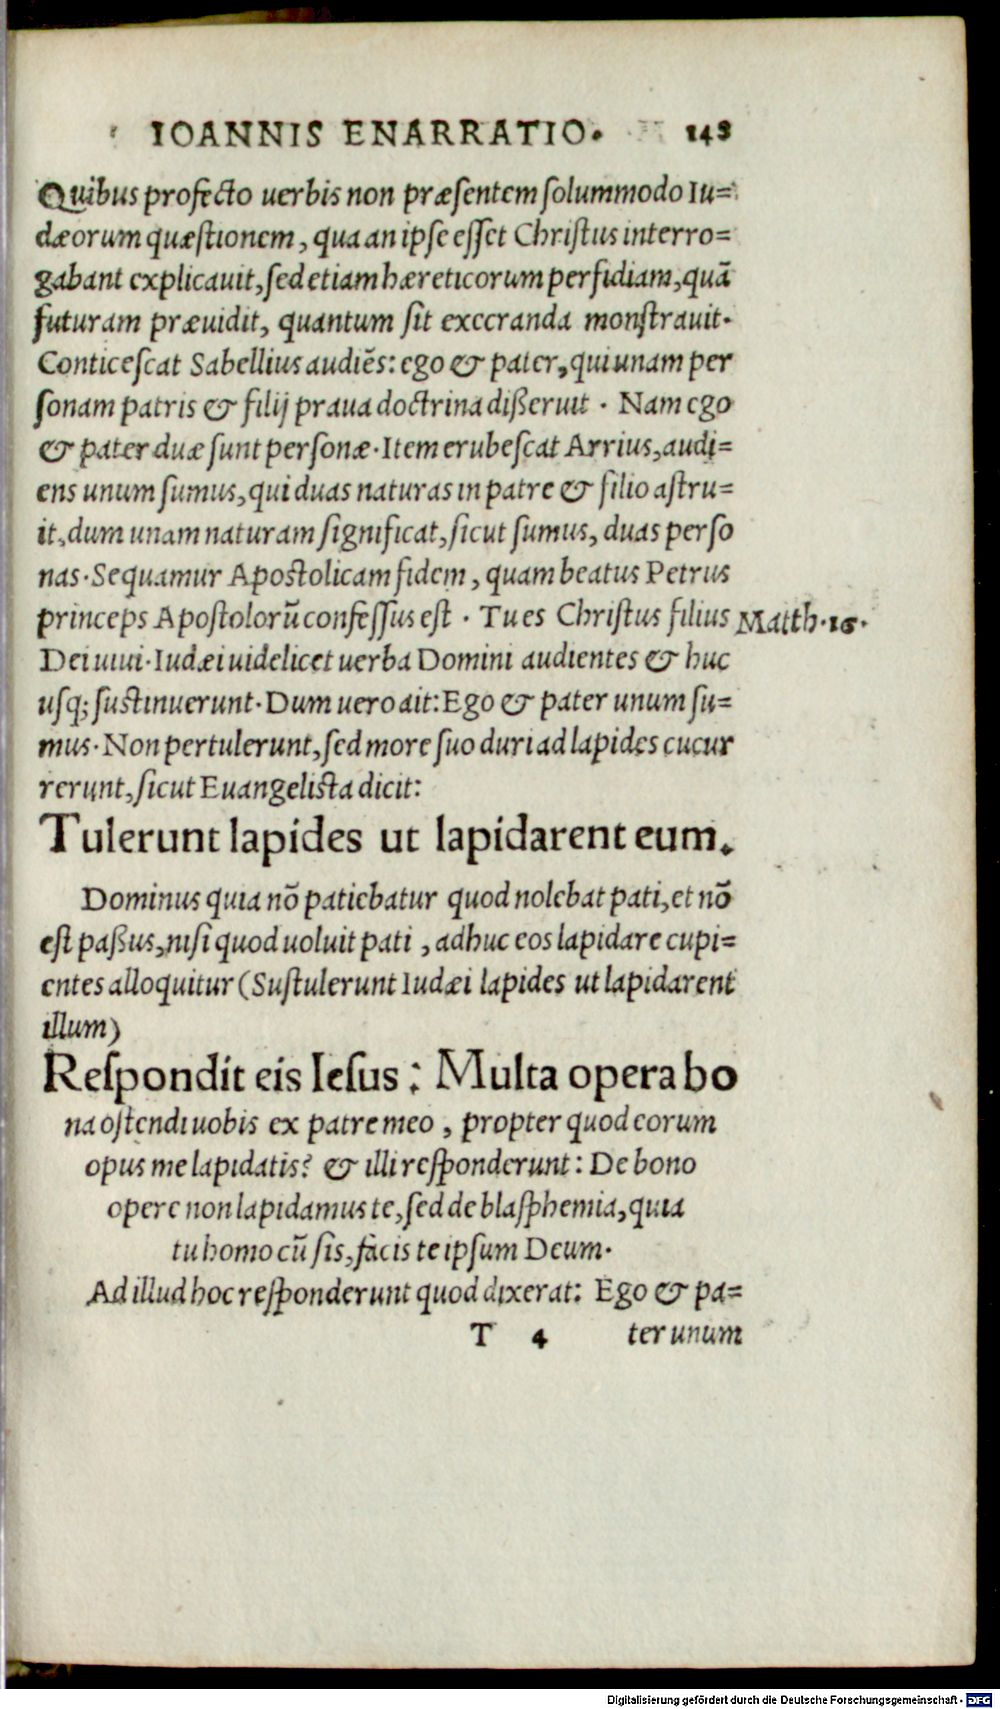 IOANNIS ENARRATIO. 148
Quibus profecto uerbis non præsentem solummodo Iu=
dæorum quæstionem, qua an ipse esset Christus interro=
gabant explicauit, sed etiam hæreticorum perfidiam, quā
futuram præuidit, quantum sit execranda monstrauit.
Conticescat Sabellius audiēs: ego & pater, qui unam per
sonam patris & filij praua doctrina dißeruit. Nam ego
& pater duæ sunt personæ. Item erubescat Arrius, audi=
ens unum sumus, qui duas naturas in patre & filio astru=
it, dum unam naturam significat, sicut sumus, duas perso
nas. Sequamur Apostolicam fidem, quam beatus Petrus
princeps Apostolorū confessus est. Tu es Christus filius Matth.16.
Dei uiui. Iudæi uidelicet uerba Domini audientes & huc
usq; sustinuerunt. Dum uero ait: Ego & pater unum su=
mus. Non pertulerunt, sed more suo duri ad lapides cucur
rerunt, sicut Euangelista dicit:
Tulerunt lapides ut lapidarent eum.
Dominus quia nō patiebatur quod nolebat pati, et nō
est paßus, nisi quod uoluit pati, adhuc eos lapidare cupi=
entes alloquitur (Sustulerunt Iudæi lapides ut lapidarent
illum)
Respondit eis Iesus: Multa opera bo
na ostendi uobis ex patre meo, propter quod eorum
opus me lapidatis? & illi responderunt: De bono
opere non lapidamus te, sed de blasphemia, quia
tu homo cū sis, facis te ipsum Deum.
Ad illud hoc responderunt quod dixerat: Ego & pa=
T 4 ter unum
Digitalisierung gefördert durch die Deutsche Forschungsgemeinschaft - DFG